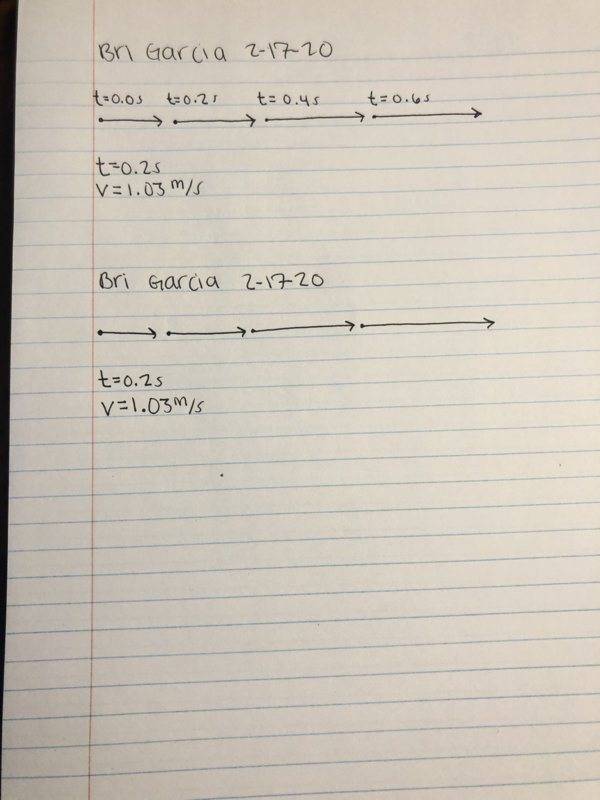 Bri Garcia 2-17-20
t=0.0s t=0.2s t=0.4s t=0.6s
t=0.2s
v=1.03 m/s
Bri Garcia 2-17-20
t=0.2s
v=1.03m/s